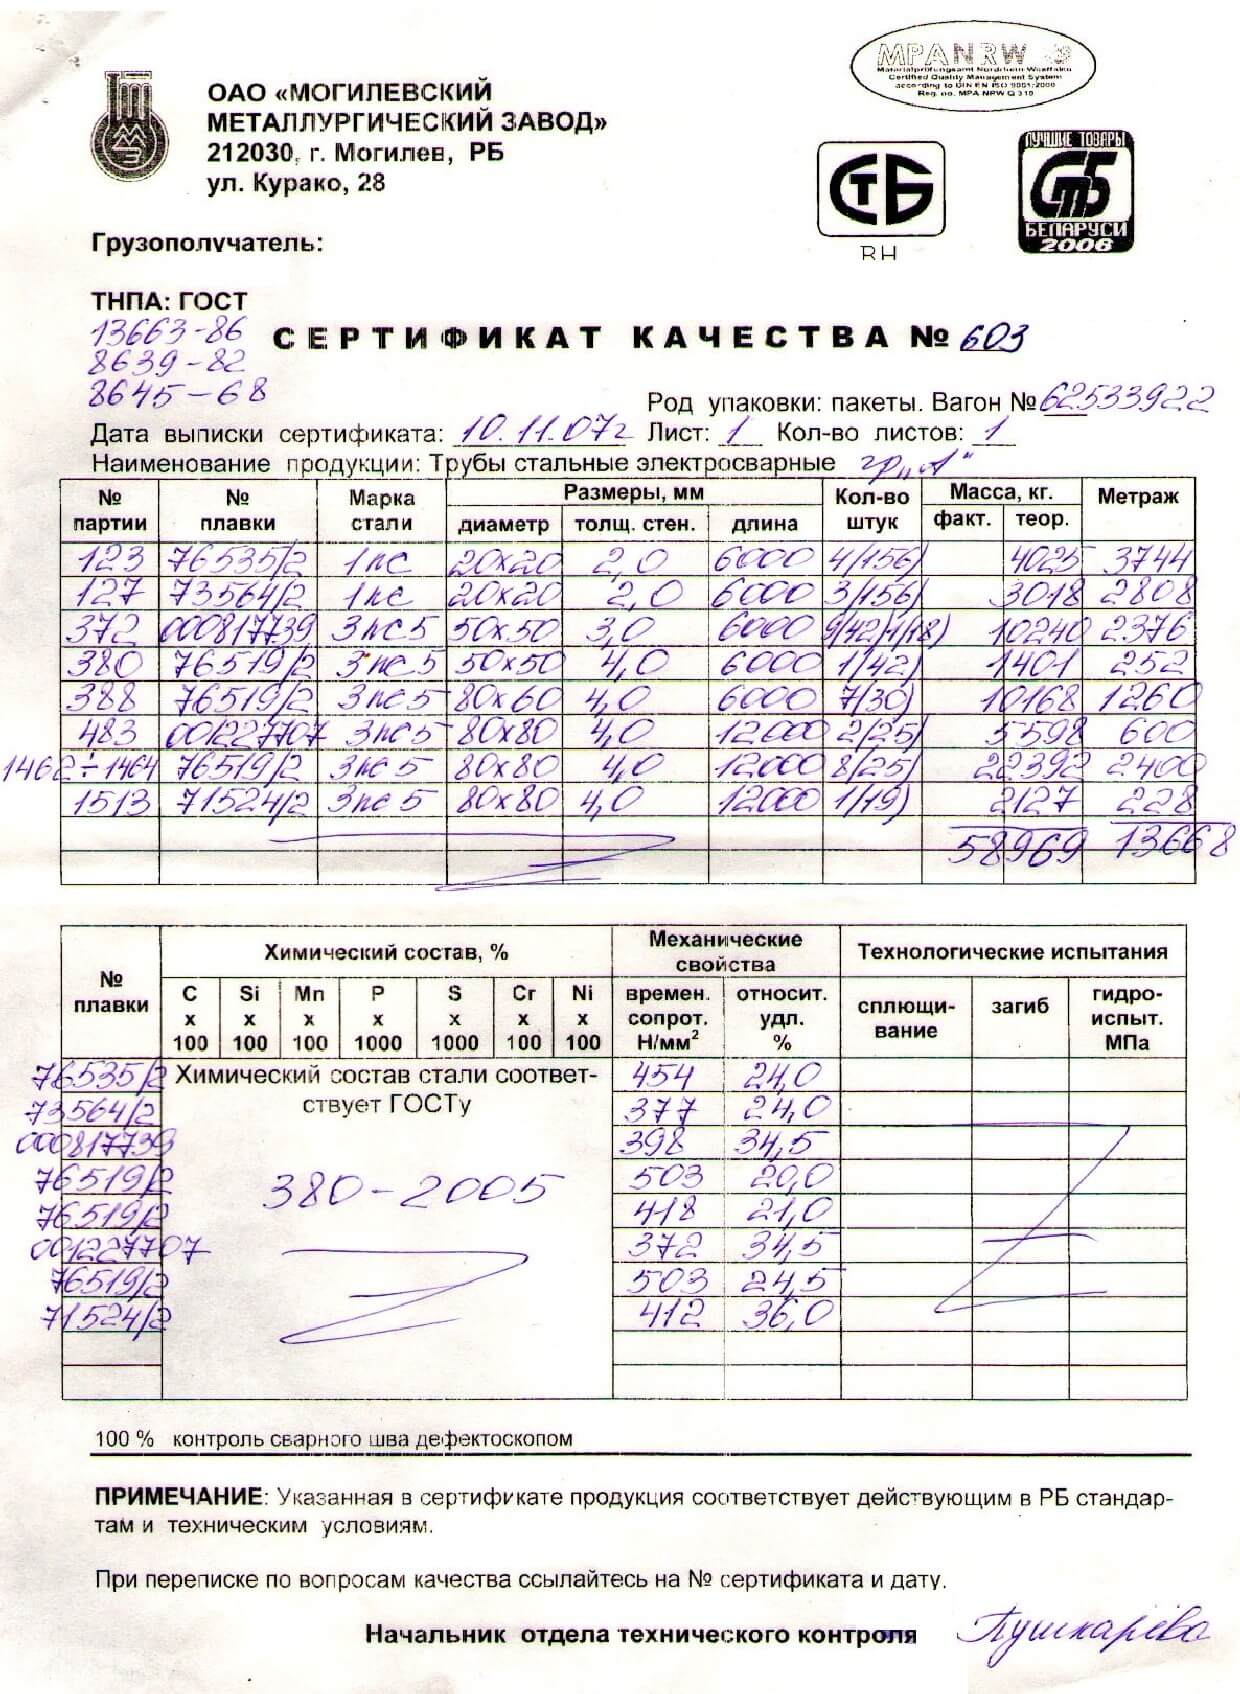 MPA NRW
Materialprüfungsamt Nordrhein-Westfalen
Certified Quality Management System
according to DIN EN ISO 9001/2000
Reg. no. MPA NRW Q 310
ОАО «МОГИЛЕВСКИЙ
МЕТАЛЛУРГИЧЕСКИЙ ЗАВОД»
212030, г. Могилев, РБ
ул. Курако, 28
СТБ
ВН
ЛУЧШИЕ ТОВАРЫ
СТБ
БЕЛАРУСИ
2006
Грузополучатель:
ТНПА: ГОСТ
13663-86
8639-82
8645-68
СЕРТИФИКАТ КАЧЕСТВА № 603
Род упаковки: пакеты. Вагон № 62533922
Дата выписки сертификата: 10.11.07г Лист: 1 Кол-во листов: 1
Наименование продукции: Трубы стальные электросварные гр „А"
№ партии № плавки Марка стали Размеры, мм Кол-во штук Масса, кг. Метраж
диаметр толщ. стен. длина факт. теор.
123 76535/2 1пс 20х20 2,0 6000 4/156) 4025 3744
127 73564/2 1пс 20х20 2,0 6000 3/156) 3018 2808
372 000817739 3пс5 50х50 3,0 6000 9/42)1/18) 10240 2376
380 76519/2 3пс5 50х50 4,0 6000 1/42) 1401 252
388 76519/2 3пс5 80х60 4,0 6000 7/30) 10168 1260
483 001227707 3пс5 80х80 4,0 12000 2/25) 5598 600
1462÷1464 76519/2 3пс5 80х80 4,0 12000 8/25) 22392 2400
1513 71524/2 3пс5 80х80 4,0 12000 1/19) 2127 228
58969 13668
№ плавки Химический состав, % Механические свойства Технологические испытания
C х 100 Si х 100 Mn х 100 P х 1000 S х 1000 Cr х 100 Ni х 100 времен. сопрот. Н/мм² относит. удл. % сплющи-вание загиб гидро-испыт. МПа
76535/2 Химический состав стали соответ- 454 24,0
73564/2 ствует ГОСТу 377 24,0
000817739 398 34,5
76519/2 380-2005 503 20,0
76519/2 418 21,0
001227707 372 34,5
76519/2 503 24,5
71524/2 412 36,0
100 % контроль сварного шва дефектоскопом
ПРИМЕЧАНИЕ: Указанная в сертификате продукция соответствует действующим в РБ стандар-
там и техническим условиям.
При переписке по вопросам качества ссылайтесь на № сертификата и дату.
Начальник отдела технического контроля Пушкарёва